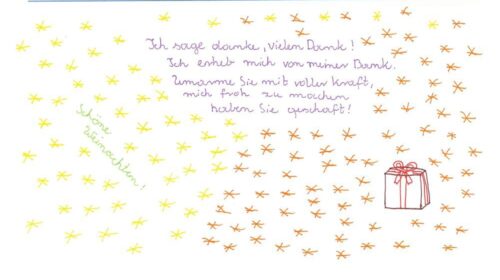 Ich sage danke, vielen Dank!
Ich erheb mich von meiner Dank.
Umarme Sie mit voller Kraft,
mich froh zu machen
haben Sie geschaft!
Schöne
Weinachten!